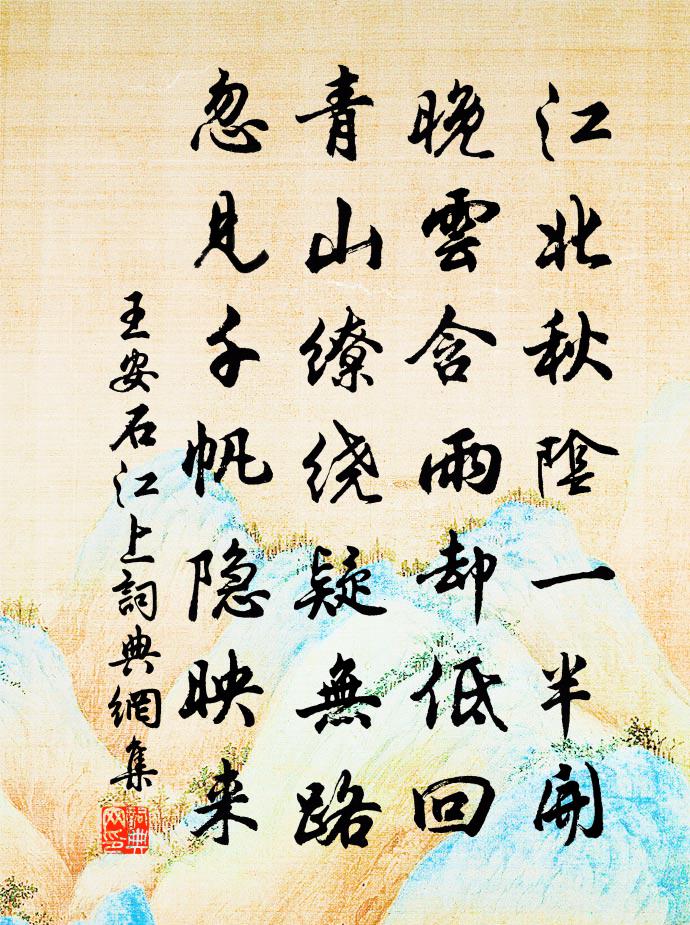 江北秋陰一半開
晚雲含雨却低回
青山缭绕疑無路
忽見千帆隐映来
王安石江上詞典網集
詞典網印